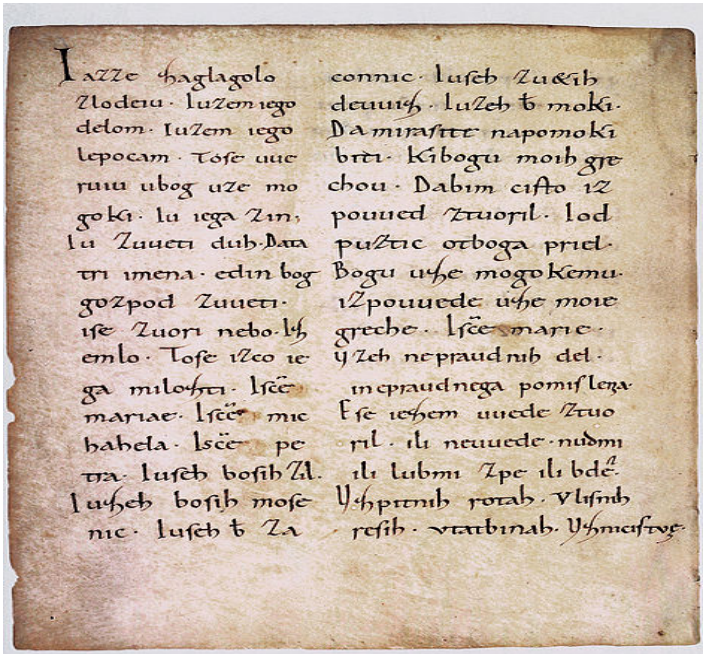 Iazze ſhaglagolo
zlodeiu · Iuzem iego
delom · Iuzem iego
lepocam · Toſe uue
ruiu ubog uze mo
goki · Iu iega zin,
Iu zuueti duh · Data
tri imena · edin bog
gozpod zuueti ·
iſe zuori nebo · Iſh
emlo · Toſe izco ie
ga miloſhti · Iſcē
mariae · Iſcē mic
hahela · Iſcē pe
tra · Iuſeh boſih zil ·
Iuſheh boſih moſe
nic · Iuſeh ƀ za
connic · Iuſeh zu&ih
deuuiſh · Iuzeh ƀ moki ·
Da miraſite napomoki
biti · Kibogu moih gre
chou · Dabim ciſto iz
pouued ztuoril · Iod
puztic otboga priel ·
Bogu uſhe mogokemu ·
izpouuede uſhe moie
greche · Iſcē marie ·
Vzeh nepraudnih del ·
inepraudnega pomiſlenza ·
Eſe ieſhem uuede ztuo
ril · ili neuuede · nudmi
ili lubmi zpe ili bde ·
Vſhpitnih rotah · Vliſnih
reſih · vtatbinah · Vſhmciſtve